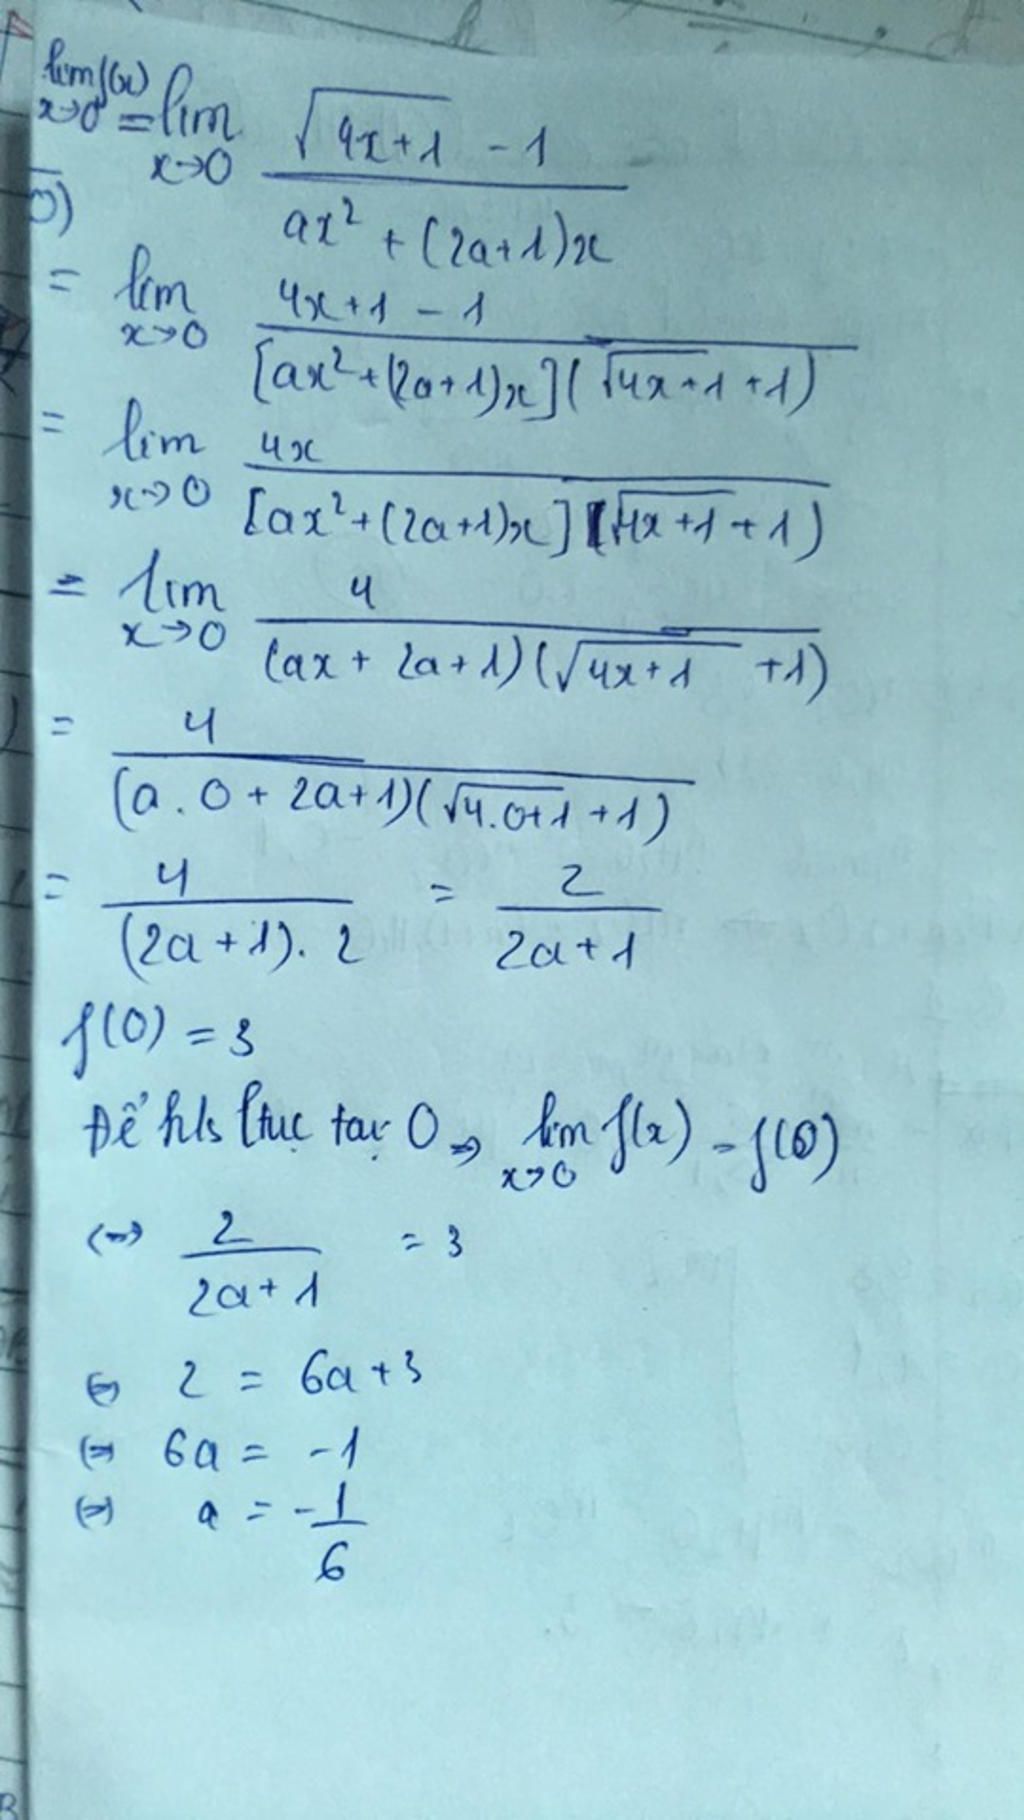 lim f(x) x→0 = lim x→0 (√(4x+1) - 1)/(ax² + (2a+1)x)
= lim x→0 (4x+1 - 1)/([ax²+(2a+1)x](√(4x+1) +1))
= lim x→0 4x/([ax²+(2a+1)x](√(4x+1) + 1))
= lim x→0 4/((ax + 2a+1)(√(4x+1) +1))
= 4/((a.0 + 2a+1)(√(4.0+1) +1))
= 4/((2a+1).2) = 2/(2a+1)
f(0) = 3
Để hs ltục tại 0 => lim x→0 f(x) = f(0)
<=> 2/(2a+1) = 3
<=> 2 = 6a+3
<=> 6a = -1
<=> a = -1/6